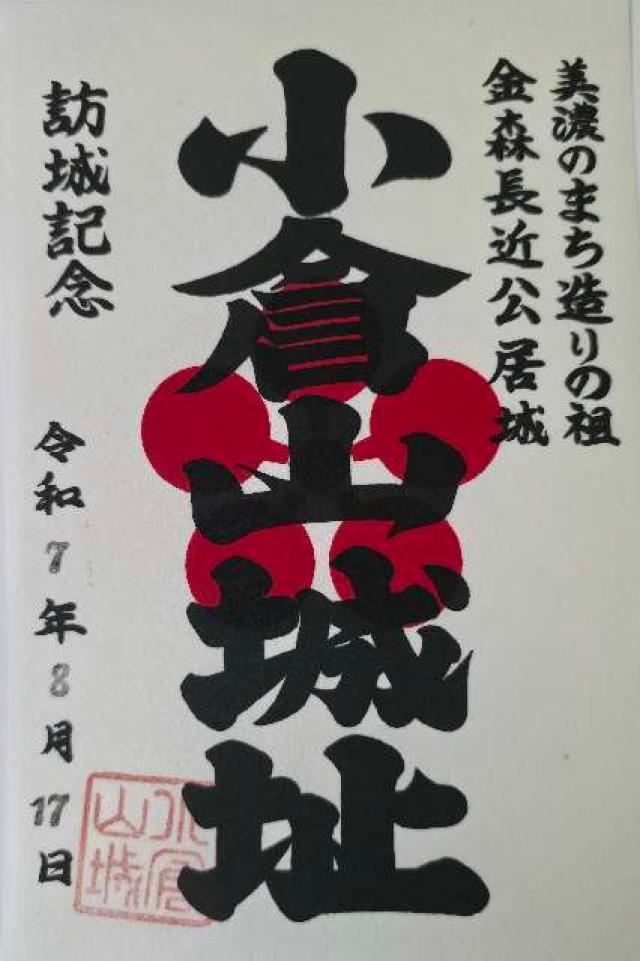 美濃のまち造りの祖
金森長近公居城
小倉山城址
訪城記念
令和7年8月17日
小倉
山城